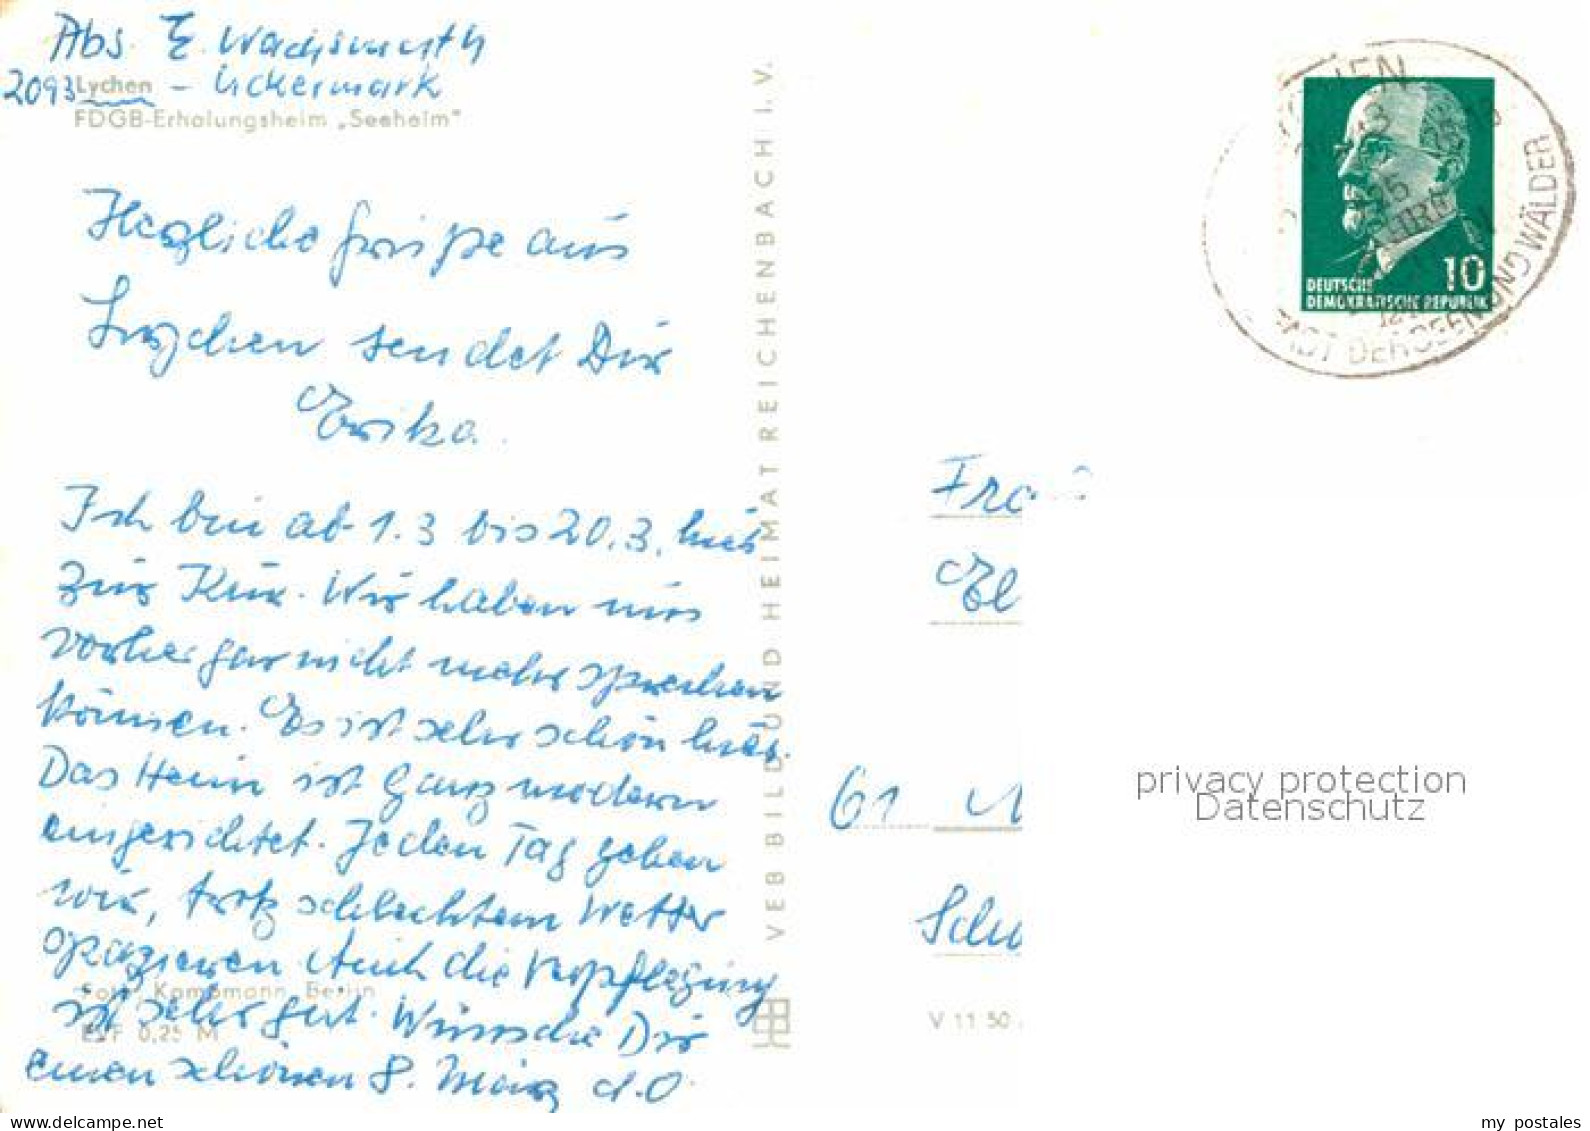 Abs. E. Wachsmuth
2093 Lychen – Uckermark
FDGB-Erholungsheim „Seeheim"
Herzliche Grüße aus
Lychen sendet Dir
Erika.
Ich bin ab 1.3 bis 20.3. hier
zur Kur. Wir haben uns
vorher gar nicht mehr sprechen
können. Es ist sehr schön hier.
Das Heim ist ganz modern
eingerichtet. Jeden Tag gehen
wir, trotz schlechtem Wetter
spazieren. Auch die Verpflegung
Foto: Kampmann, Berlin
ist sehr gut. Wünsche Dir
EVP 0,25 M
einen schönen 8. März d.O
VEB BILD UND HEIMAT REICHENBACH I. V.
DEUTSCHE
DEMOKRATISCHE REPUBLIK
10
STADT DER SEEN UND WÄLDER
Fra
El
61
Schu
V 11 50
privacy protection
Datenschutz
www.delcampe.net
my_postales